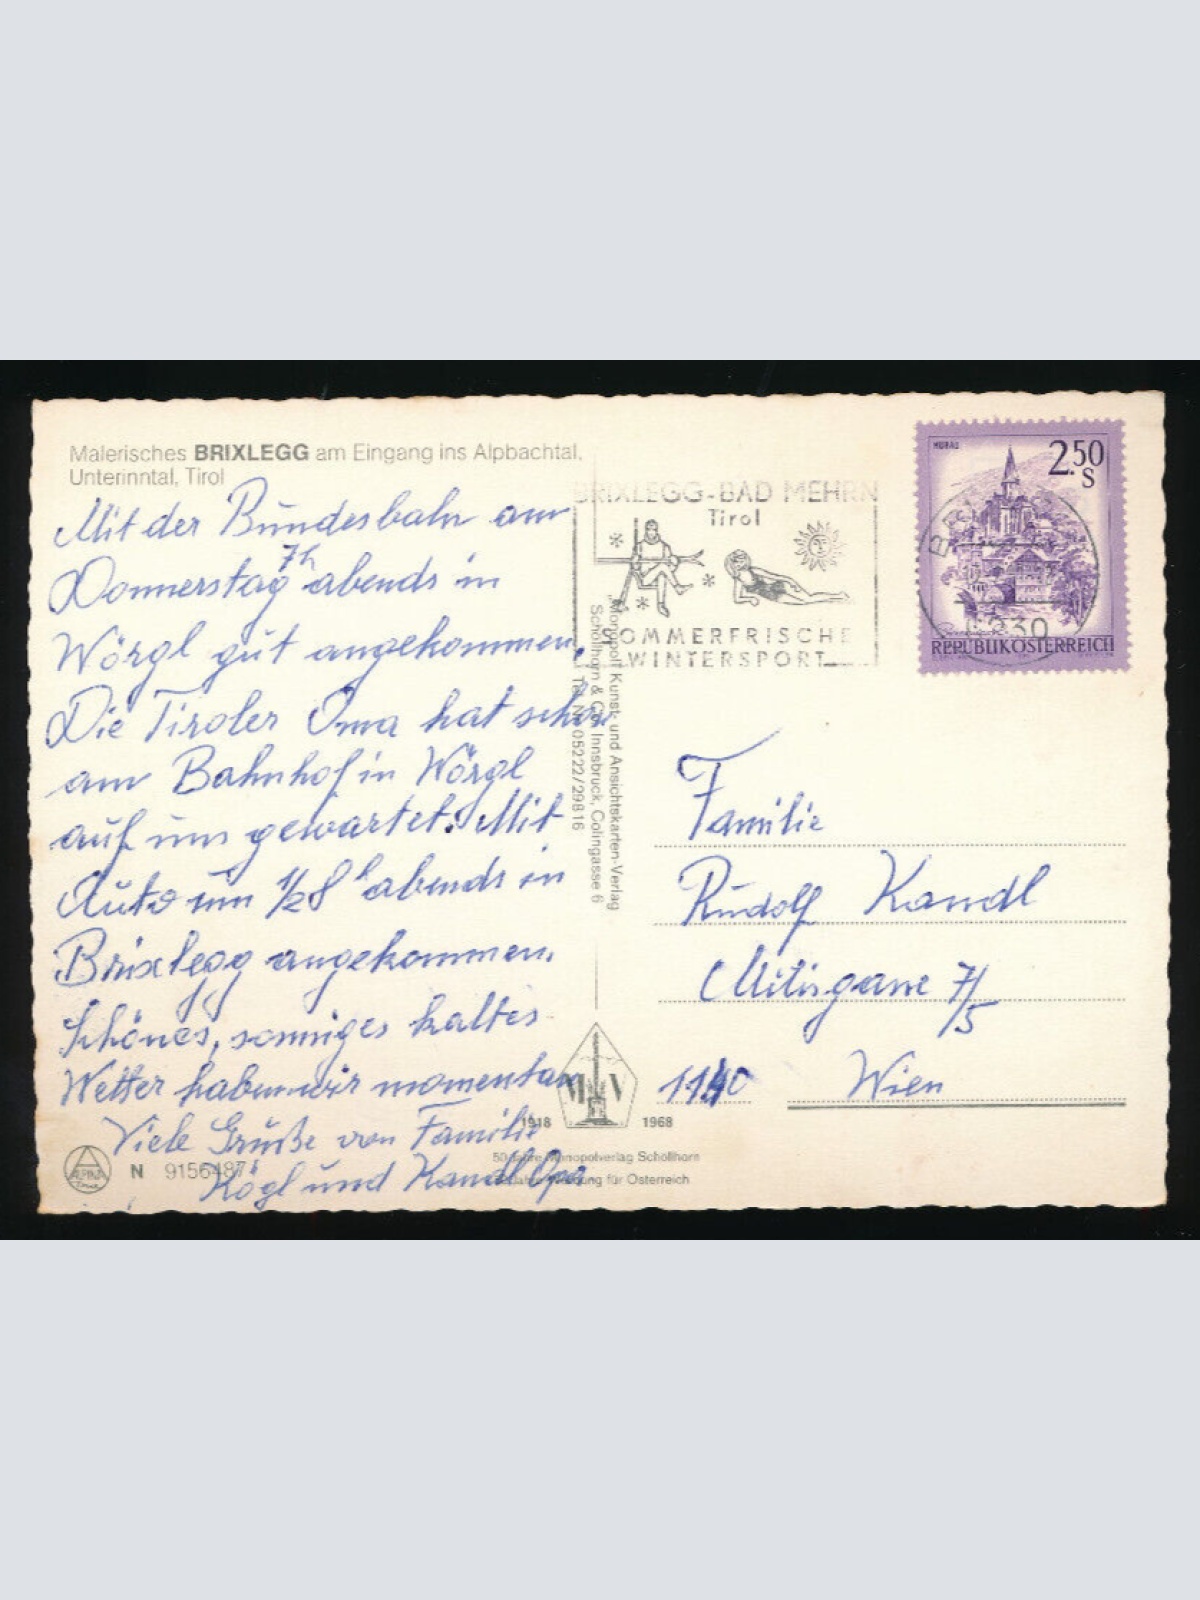 Malerisches BRIXLEGG am Eingang ins Alpbachtal,
Unterinntal, Tirol
Mit der Bundesbahn am
Donnerstag 7h abends in
Wörgl gut angekommen.
Die Tiroler Oma hat schon
am Bahnhof in Wörgl
auf uns gewartet. Mit
Auto um 1/28h abends in
Brixlegg angekommen.
Schönes, sonniges kaltes
Wetter haben wir momentan
Viele Grüße von Familie
Kögl und Kandl Opa.
ALPINA
N 9156487
BRIXLEGG-BAD MEHRN
Tirol
SOMMERFRISCHE
WINTERSPORT
MURAU
2.50
S
6230
REPUBLIK ÖSTERREICH
„Monopol" Kunst- und Ansichtskarten-Verlag
Schöllhorn & Co. Innsbruck, Colingasse 6
Tel. Nr. 05222/29816
Familie
Rudolf Kandl
7/5
1140 Wien
M V
1918 1968
50 Jahre Monopolverlag Schöllhorn
50 Jahre Werbung für Österreich